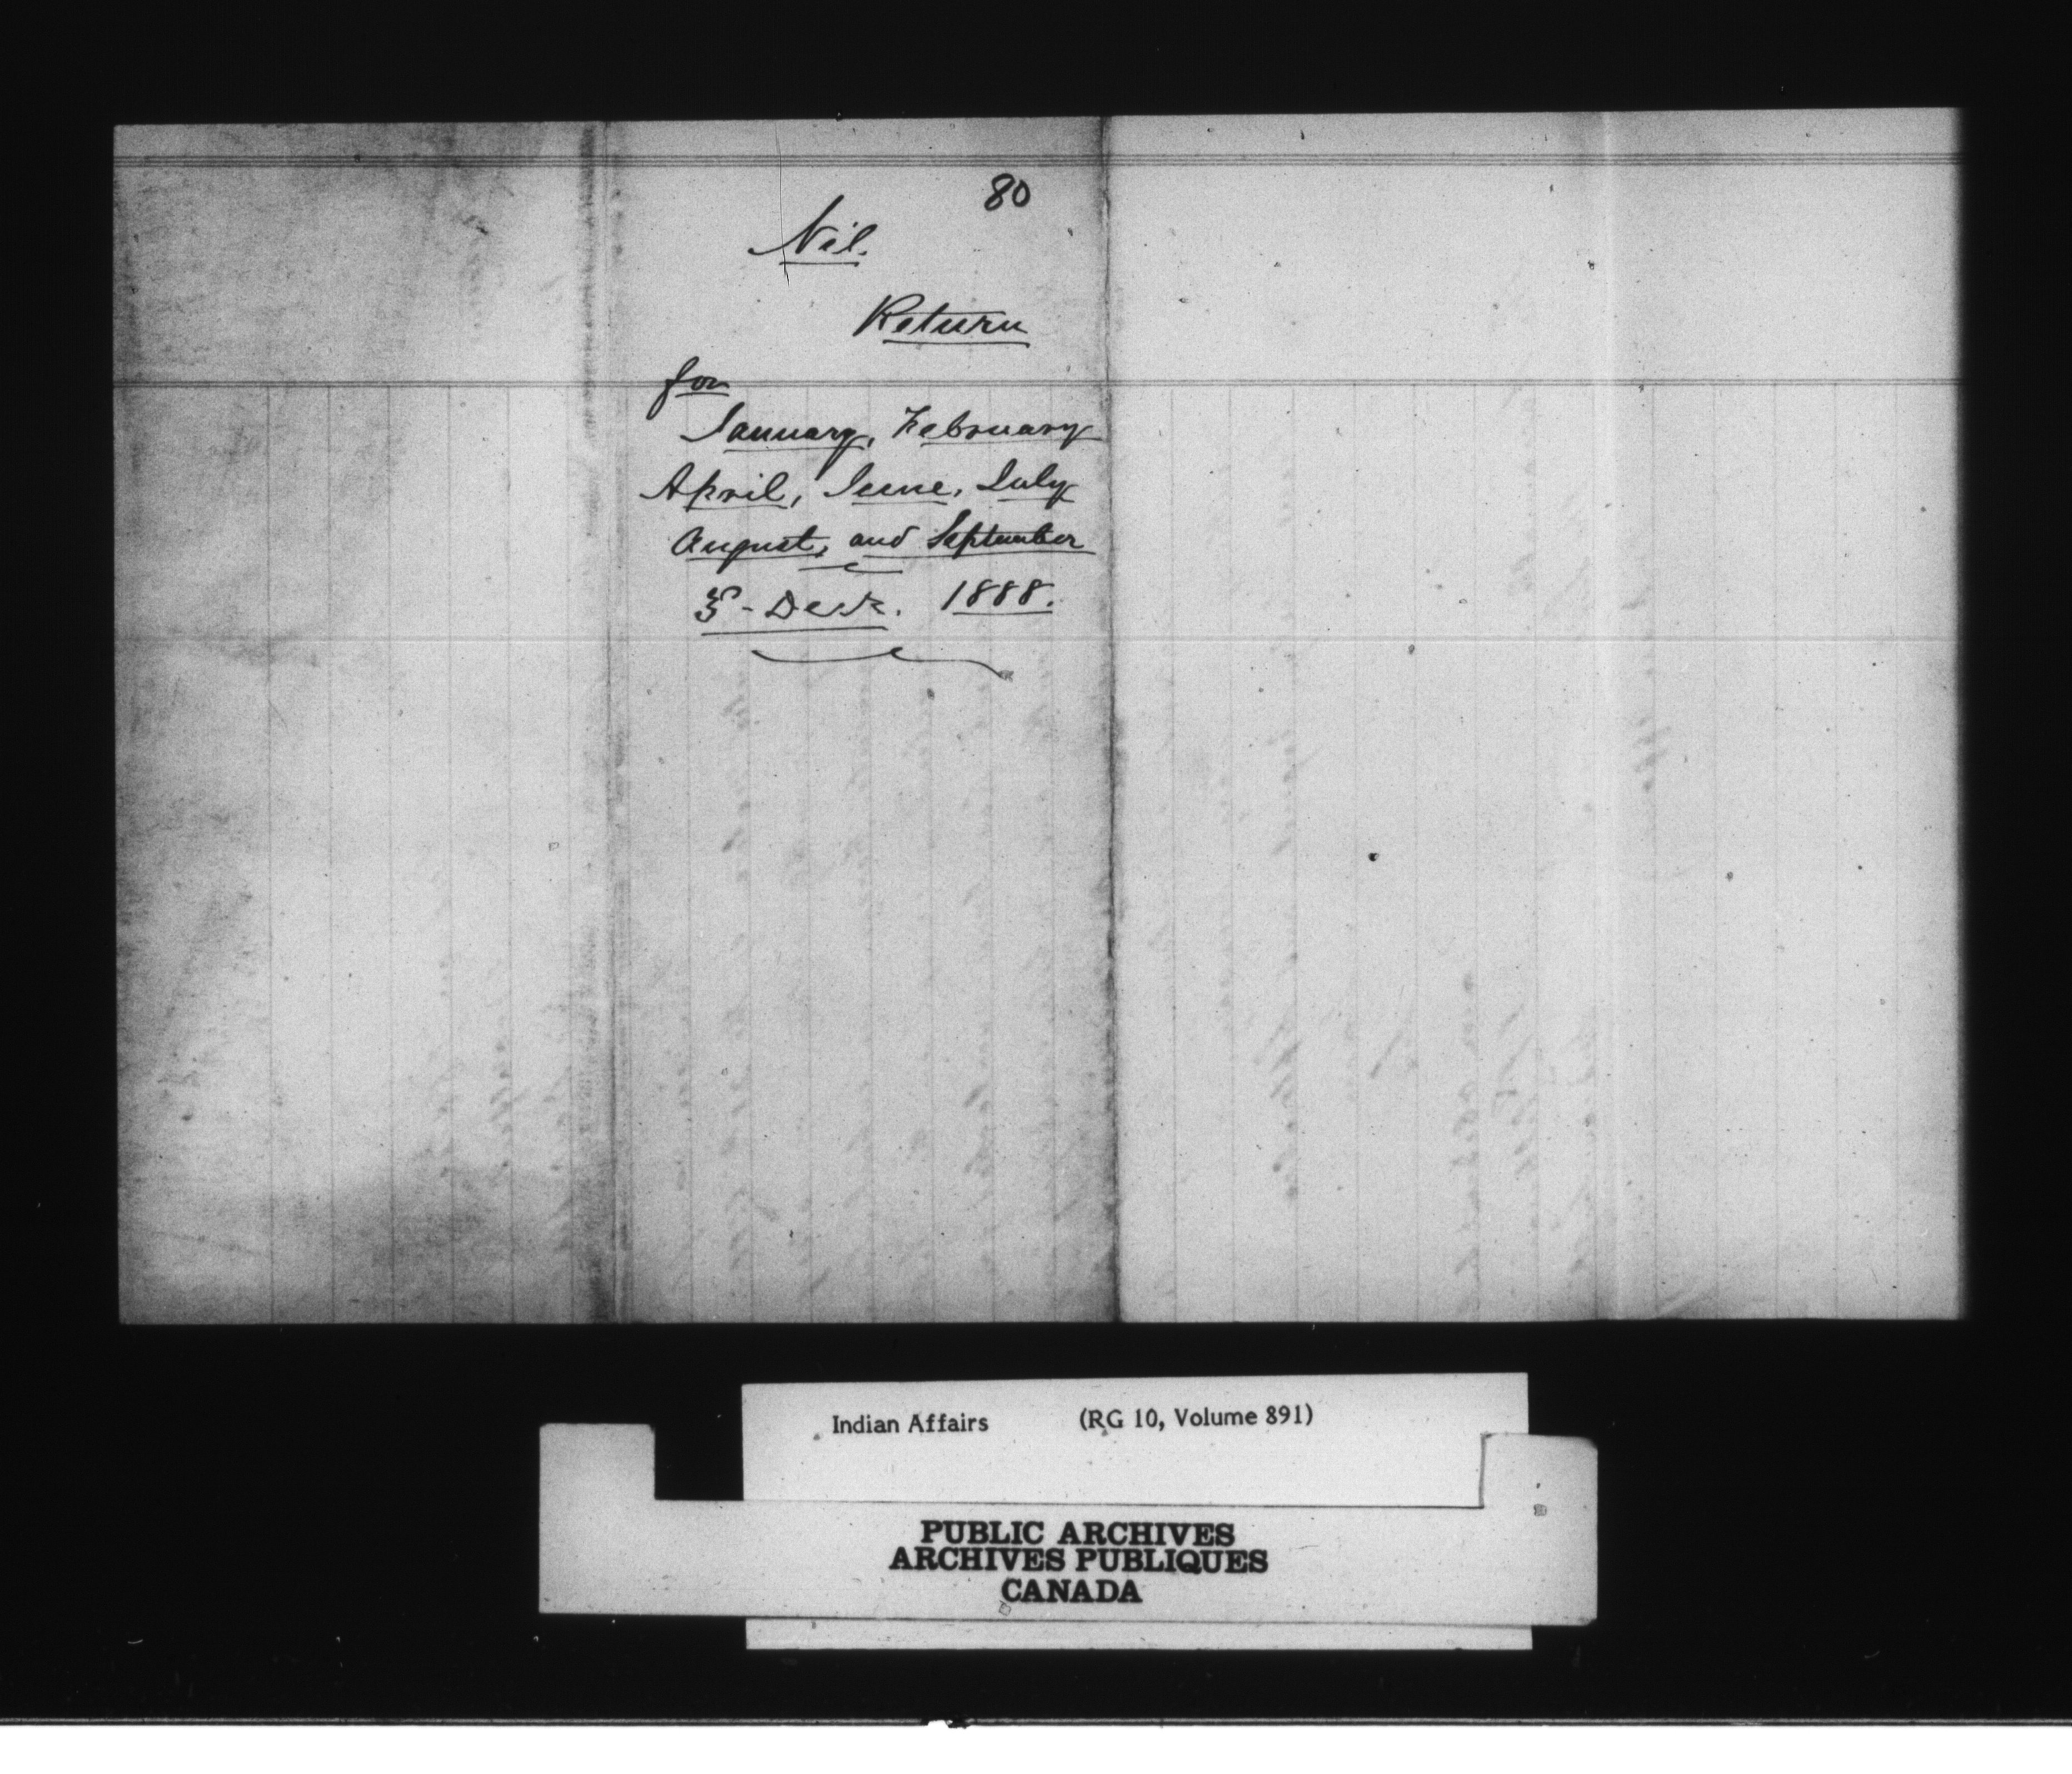 80
Nil.
Return
for
January, February
April, June, July
August, and September
& - Decr. 1888.
Indian Affairs (RG 10, Volume 891)
PUBLIC ARCHIVES
ARCHIVES PUBLIQUES
CANADA